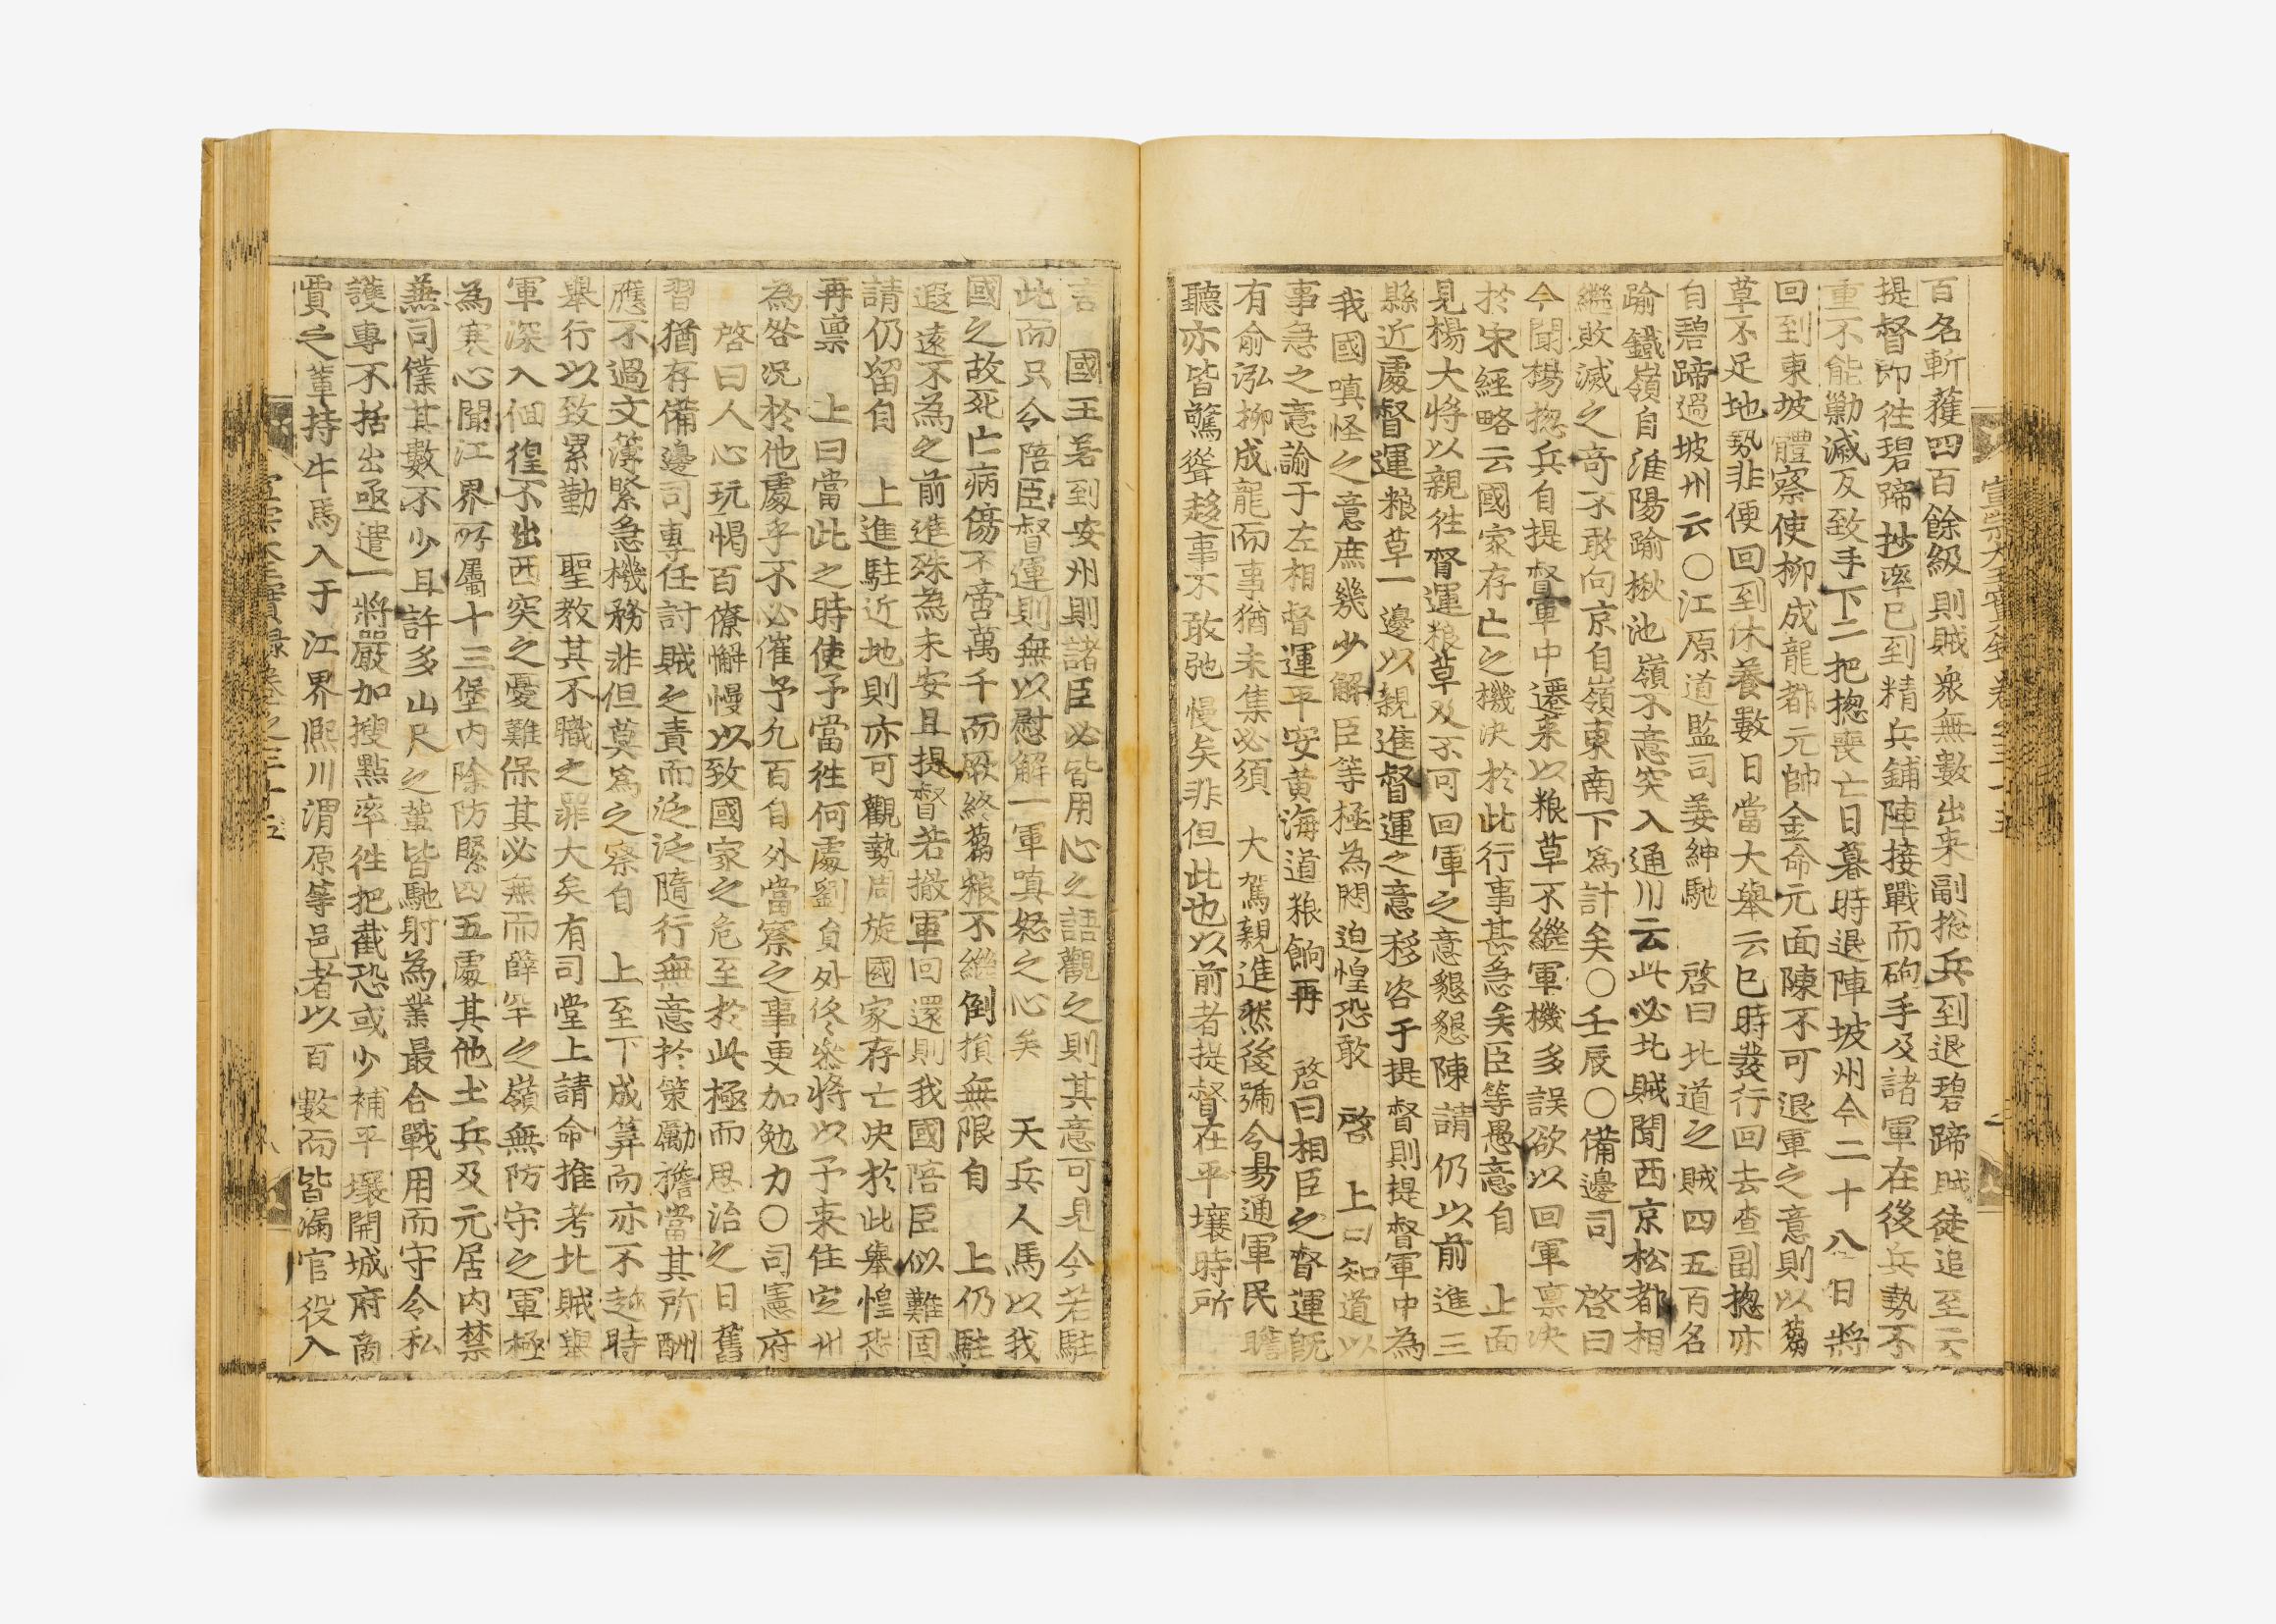 宣宗大王實錄卷之三十五
百名斬獲四百餘級則賊衆無數出來副摠兵到退碧蹄賊徒追至云
提督卽往碧蹄抄率已到精兵鋪陣接戰而砲手及諸軍在後兵勢不
重不能勦滅反致手下二把摠喪亡日暮時退陣坡州今二十八日將
回到東坡體察使柳成龍都元帥金命元面陳不可退軍之意則以蒭
草不足地勢非便回到休養數日當大擧云巳時發行回去査副摠亦
自碧蹄過坡州云○江原道監司姜紳馳 啓曰北道之賊四五百名
踰鐵嶺自淮陽踰楸池嶺不意突入通川云此必北賊聞西京松都相
繼敗滅之奇不敢向京自嶺東南下爲計矣○壬辰○備邊司 啓曰
今聞楊摠兵自提督軍中還來以粮草不繼軍機多誤欲以回軍禀決
於宋經略云國家存亡之機決於此行事甚急矣臣等愚意自 上面
見楊大將以親往督運粮草及不可回軍之意懇懇陳請仍以前進三
縣近處督運粮草一邊以親進督運之意移咨于提督則提督軍中爲
我國嗔怪之意庶幾少解臣等極為悶迫惶恐敢 啓 上曰知道以
事急之意諭于左相督運平安黃海道粮餉再 啓曰相臣之督運旣
有俞泓柳成龍而事猶未集必須 大駕親進然後號令易通軍民瞻
聽亦皆驚聳趍事不敢弛慢矣非但此也以前者提督在平壤時所
言 國王若到安州則諸臣必皆用心之語觀之則其意可見今若駐
此而只令陪臣督運則無以慰解一軍嗔怒之心矣 天兵人馬以我
國之故死亡病傷不啻萬千而厥終蒭粮不繼倒損無限自 上仍駐
遐遠不為之前進殊為未安且提督若撤軍回還則我國陪臣似難固
請仍留自 上進駐近地則亦可觀勢周旋國家存亡决於此擧惶恐
再禀 上曰當此之時使予當往何處劉員外佟叅將以予來住定州
為咎况於他處乎不必催予凡百自外當察之事更加勉力○司憲府
啓曰人心玩愒百僚懈慢以致國家之危至於此極而思治之日舊
習猶存備邊司專任討賊之責而泛泛隨行無意於策勵擔當其所酬
應不過文簿緊急機務非但莫爲之察自 上至下成筭而亦不趂時
擧行以致累勤 聖教其不職之罪大矣有司堂上請命推考北賊擧
軍深入徊徨不出西突之憂難保其必無而薛罕之嶺無防守之軍極
為寒心聞江界所屬十三堡內除防緊四五處其他土兵及元居內禁
兼司僕其數不少且許多山尺之輩皆馳射為業最合戰用而守令私
護專不括出亟遣一將嚴加搜點率往把截恐或少補平壤開城府商
賈之輩持牛馬入于江界熙川渭原等邑者以百數而皆漏官役入
宣宗大王實錄卷之三十五
八